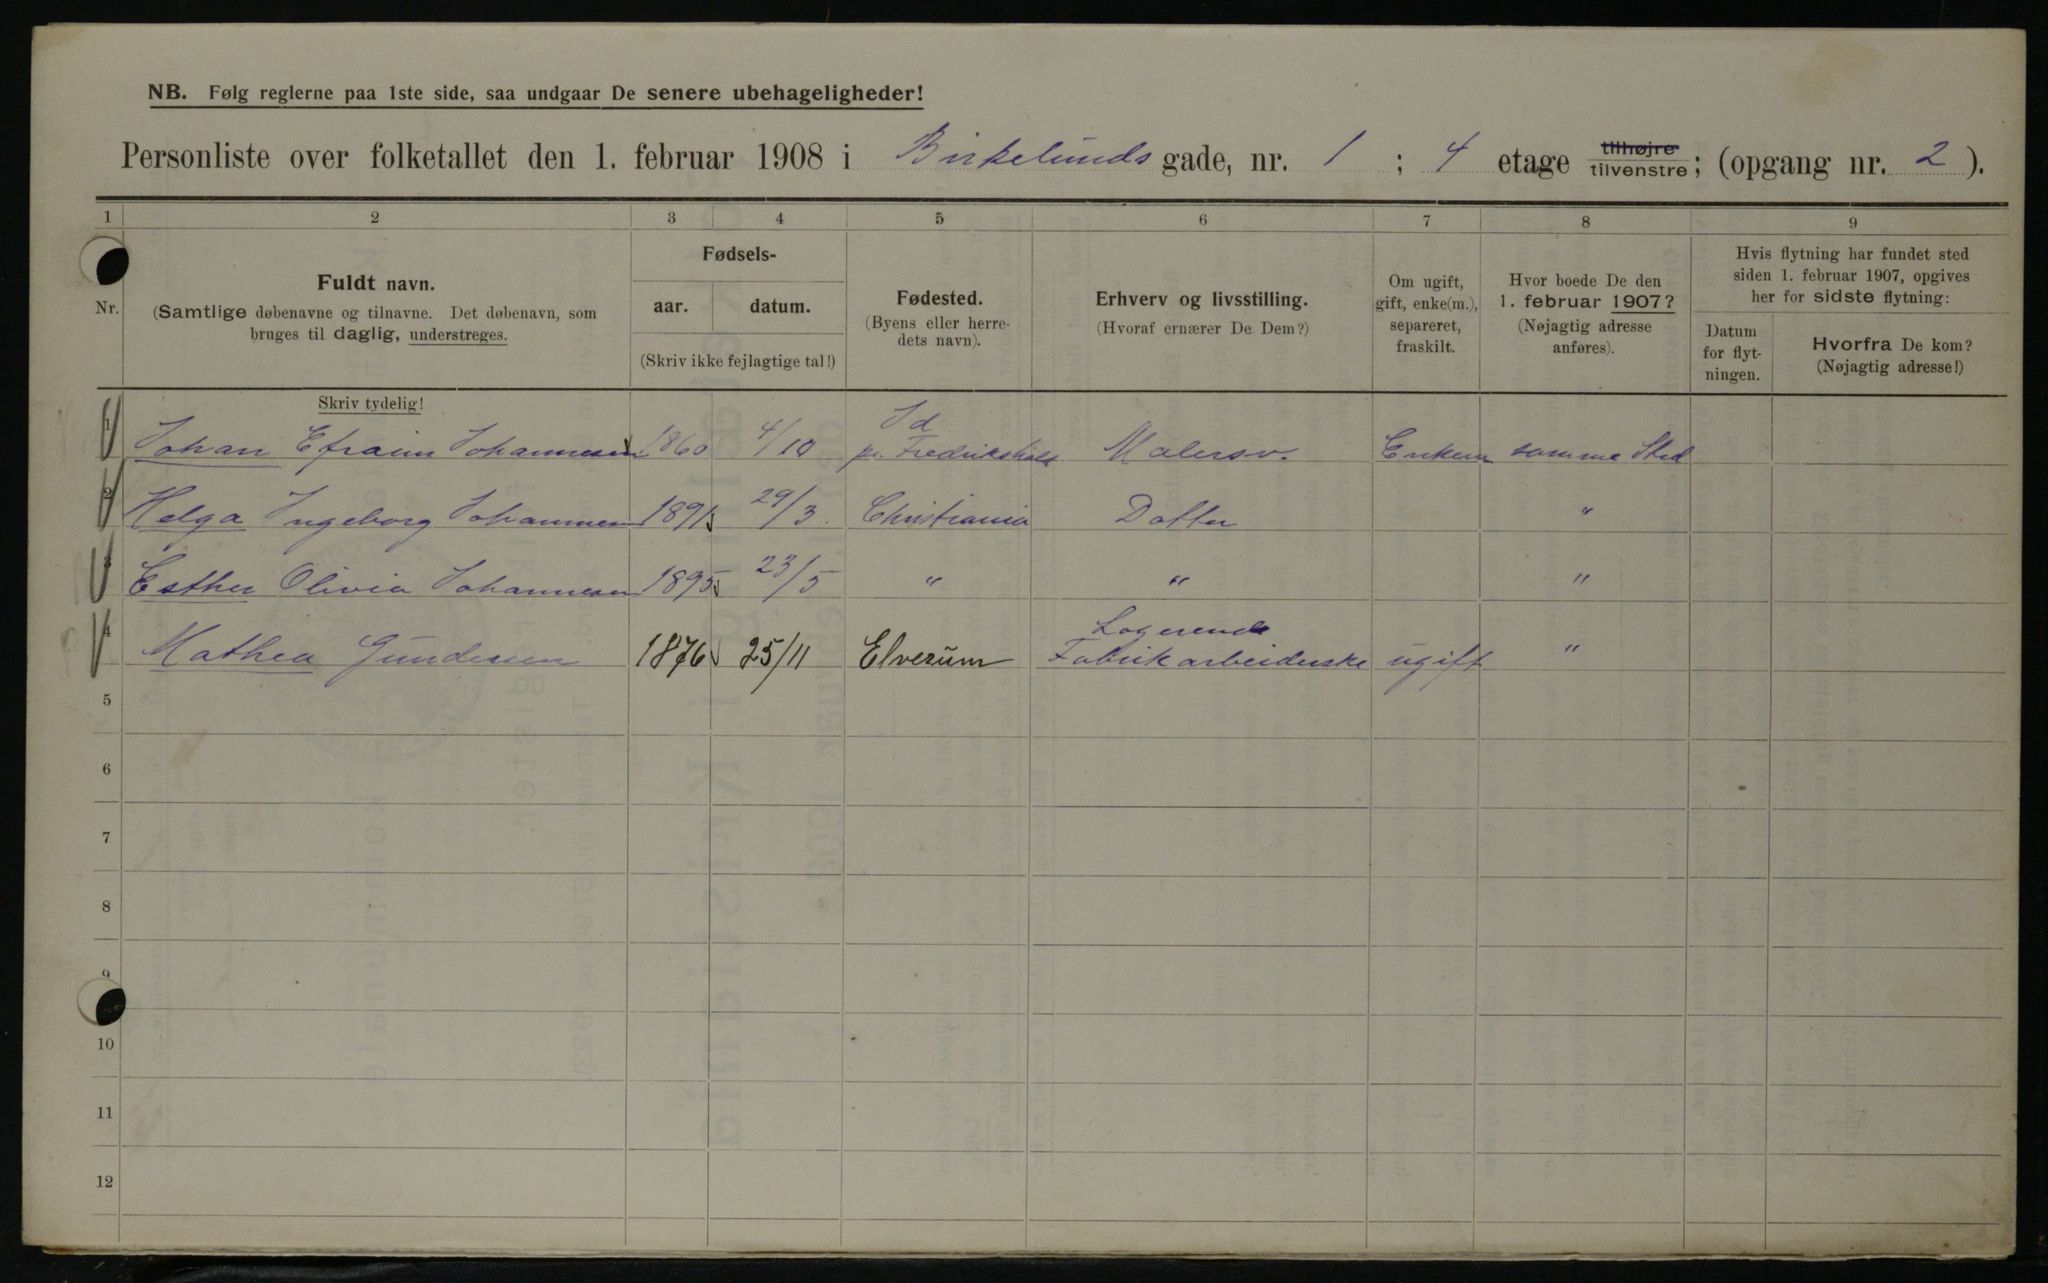 NB. Følg reglerne paa 1ste side, saa undgaar De senere ubehageligheder!
Personliste over folketallet den 1. februar 1908 i Birkelunds gade, nr. 1 ; 4 etage tilhøjre tilvenstre; (opgang nr. 2 ).
1 2 3 4 5 6 7 8 9
Nr.
Fuldt navn.
(Samtlige døbenavne og tilnavne. Det døbenavn, som
bruges til daglig, understreges.
Skriv tydelig!
Fødsels-
aar. datum.
(Skriv ikke fejlagtige tal!)
Fødested.
(Byens eller herre-
dets navn).
Erhverv og livsstilling.
(Hvoraf ernærer De Dem?)
Om ugift,
gift, enke(m.),
separeret,
fraskilt.
Hvor boede De den
1. februar 1907?
(Nøjagtig adresse
anføres).
Hvis flytning har fundet sted
siden 1. februar 1907, opgives
her for sidste flytning:
Datum
for flyt-
ningen.
Hvorfra De kom?
(Nøjagtig adresse!)
1 Johan Efraim Johannesen 1860 4/10 Id pr. Fredrikshald Malersv. Enkem samme Sted
2 Helga Ingeborg Johannesen 1891 29/3 Christiania Datter "
3 Esther Olivia Johannesen 1895 23/5 " " "
4 Mathea Gundersen 1876 25/11 Elverum Logerende Fabrikarbeiderske ugift "
5
6
7
8
9
10
11
12